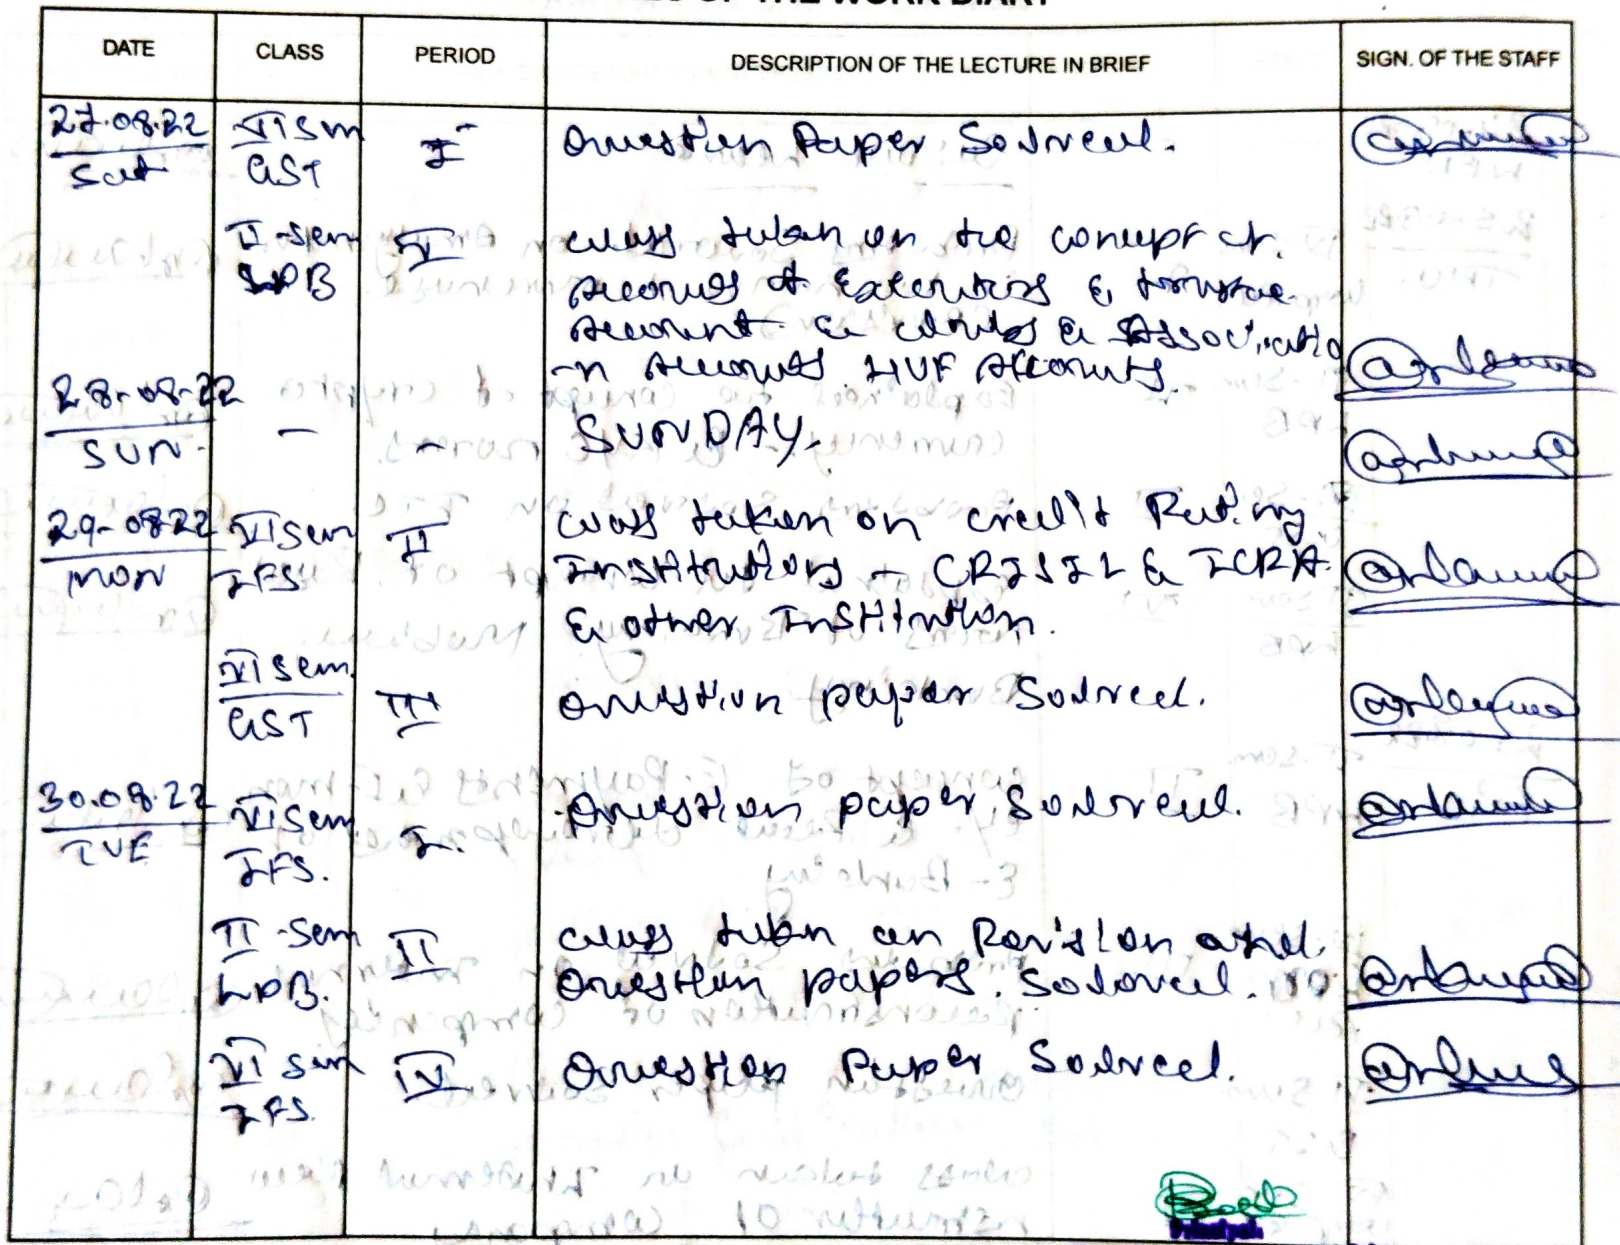 THE WORK DIARY
DATE CLASS PERIOD DESCRIPTION OF THE LECTURE IN BRIEF SIGN. OF THE STAFF
27.08.22 VI Sem I Question Paper Solved.
Sat GST
II-Sem class taken on the concept of
LPB Accounts of Executors & trustee
Account & clubs & Associatio
-n Accounts. HUF Accounts.
28-08-22
SUN - - SUNDAY.
29-08-22 VI Sem II class taken on credit Rating
MON IFS Institutions - CRISIL & ICRA
& other Institution.
VI Sem
GST III Question paper Solved.
30.08.22 VI Sem I. Question paper Solved.
TUE IFS.
II-Sem II class taken on Revision and
LPB. Question papers. Solved.
VI Sem IV Question Paper Solved.
IFS.
Principal